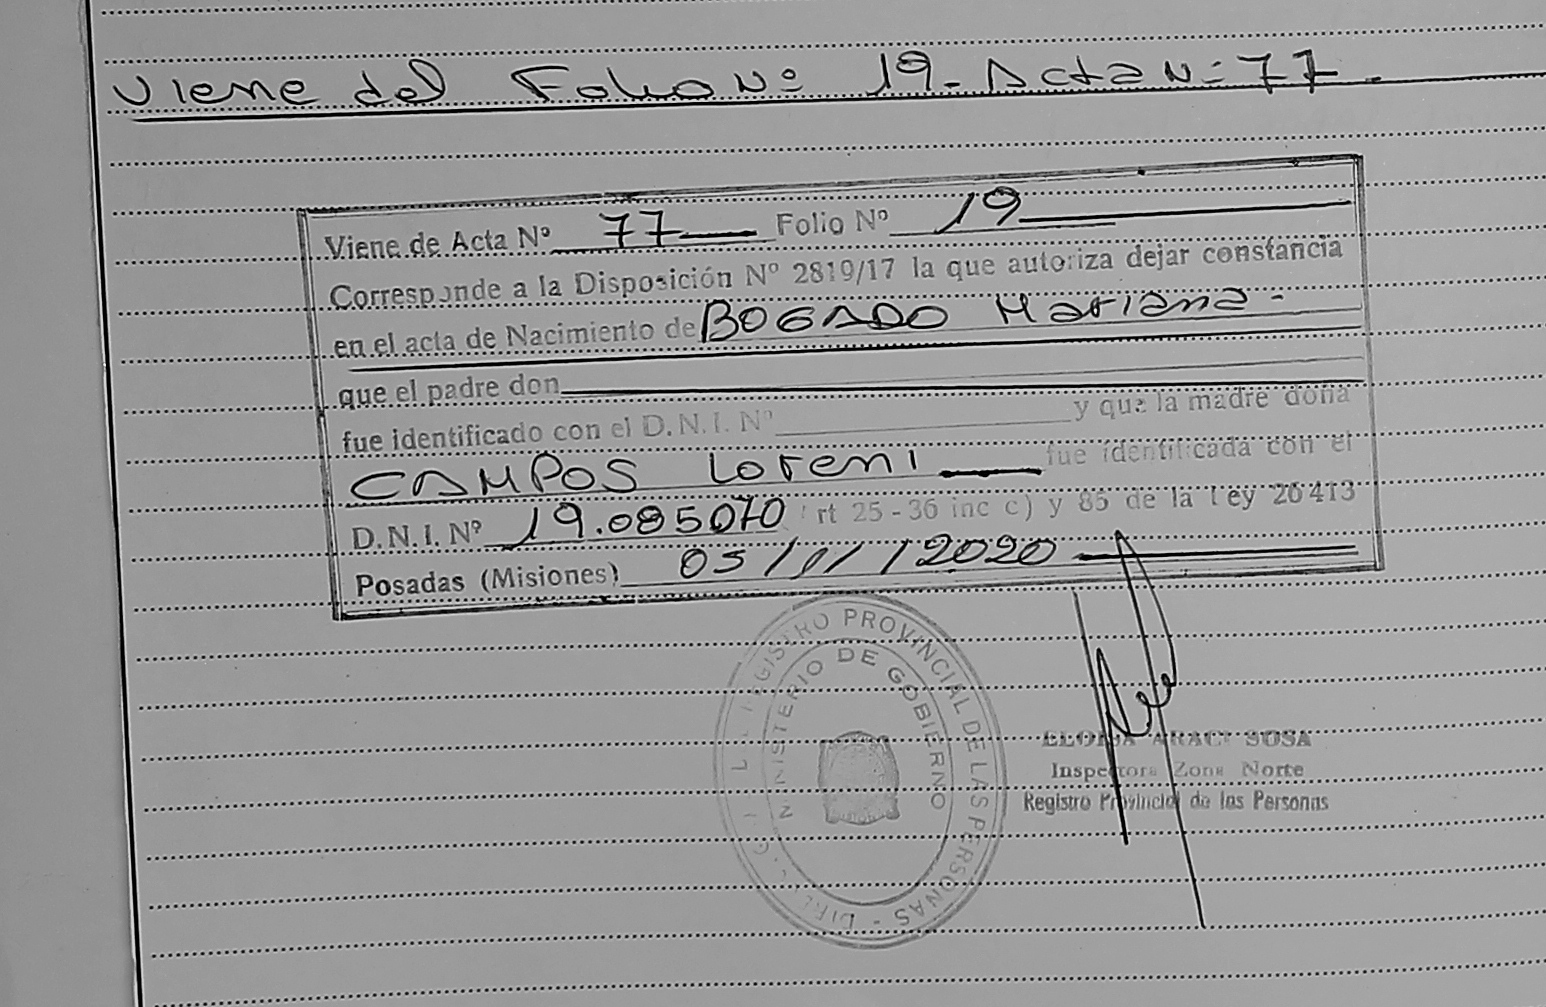 Viene del Folio Nº 19- Acta Nº 77.
Viene de Acta Nº 77 Folio Nº 19
Corresponde a la Disposición Nº 2819/17 la que autoriza dejar constancia
en el acta de Nacimiento de BOGADO Mariana -
que el padre don
fue identificado con el D.N.I. Nº y que la madre doña
CAMPOS Loreni fue identificada con el
D.N.I. Nº 19.085070 rt 25-36 inc c) y 85 de la Ley 26413
Posadas (Misiones) 05/11/2020
REGISTRO PROVINCIAL DE LAS PERSONAS -
MINISTERIO DE GOBIERNO
SOSA
Inspectora Zona Norte
Registro Provincial de las Personas